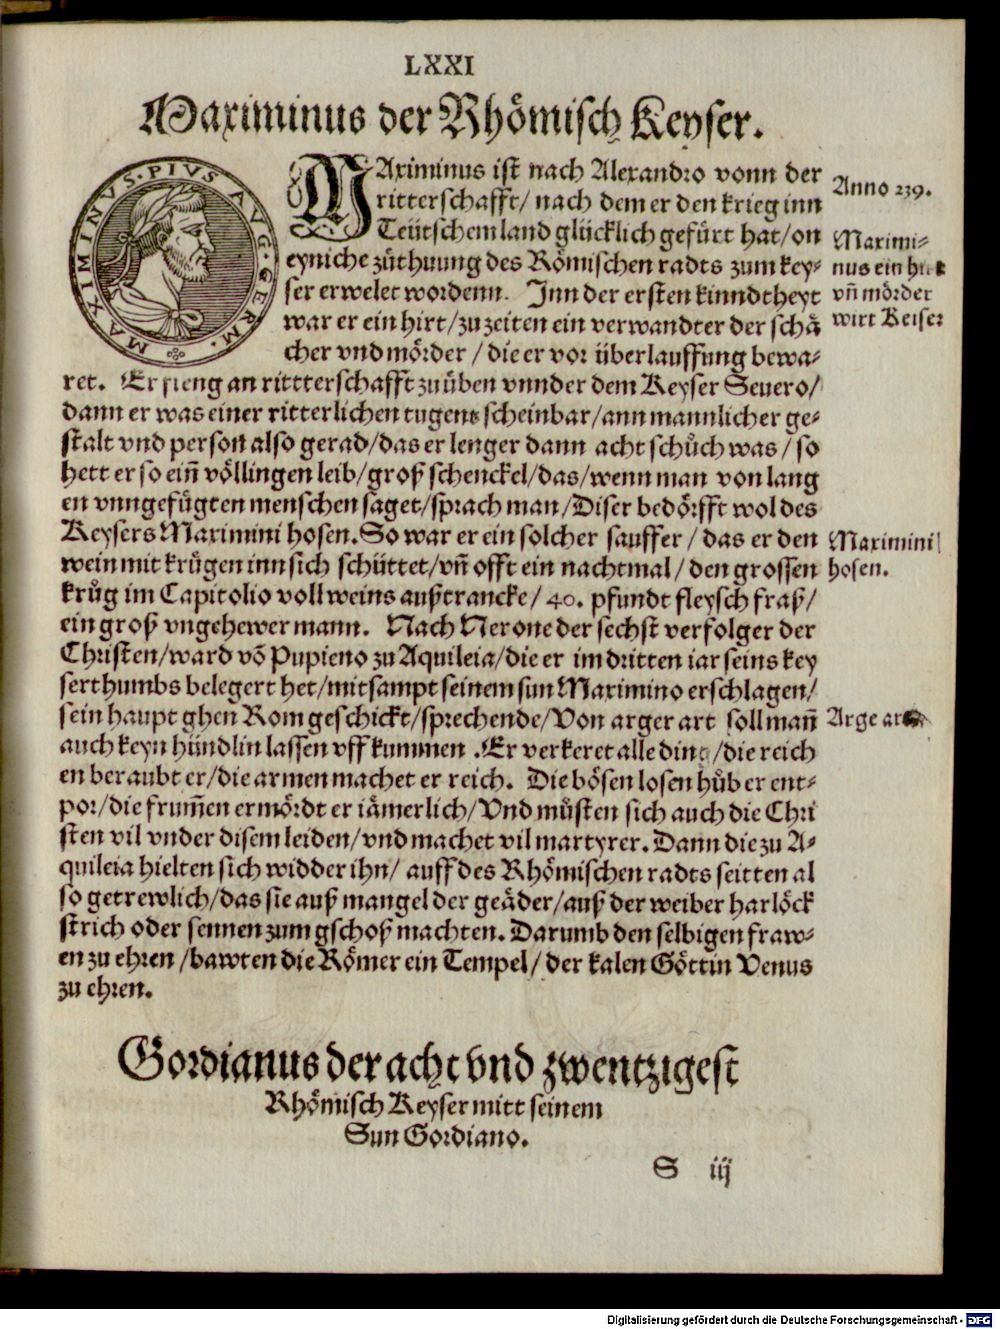 LXXI
Maximinus der Rhömisch Keyser.
MAXIMINVS·PIVS·AVG·GERM·
MAximinus ist nach Alexandro vonn der
ritterschafft/ nach dem er den krieg inn
Teütschem land glücklich gefürt hat/on
eyniche zůthuung des Römischen radts zum key-
ser erwelet wordenn. Inn der ersten kinndtheyt
war er ein hirt/zu zeiten ein verwandter der schä
cher vnd mörder / die er vor überlauffung bewa-
ret. Er fieng an rittterschafft zu üben vnnder dem Keyser Seuero/
dann er was einer ritterlichen tugent scheinbar/ann mannlicher ge-
stalt vnd person also gerad/das er lenger dann acht schůch was/ so
hett er so ein̄ völlingen leib/groß schenckel/das/wenn man von lang
en vnngefügten menschen saget/sprach man/Diser bedörfft wol des
Keysers Maximini hosen. So war er ein solcher sauffer / das er den
wein mit krügen inn sich schüttet/vn̄ offt ein nachtmal/ den grossen
krůg im Capitolio voll weins außtrancke/ 40. pfundt fleysch fraß/
ein groß vngehewer mann. Nach Nerone der sechst verfolger der
Christen/ward vō Pupieno zu Aquileia/die er im dritten iar seins key
serthumbs belegert het/mitsampt seinem sun Maximino erschlagen/
sein haupt ghen Rom geschickt/sprechende/Von arger art soll man̄
auch keyn hündlin lassen vff kummen .Er verkeret alle ding/die reich
en beraubt er/die armen machet er reich. Die bösen losen hůb er ent-
por/die frum̄en ermördt er iämerlich/Vnd můsten sich auch die Chri
sten vil vnder disem leiden/vnd machet vil martyrer. Dann die zu A-
quileia hielten sich widder ihn/ auff des Rhömischen radts seitten al
so getrewlich/das sie auß mangel der geäder/auß der weiber harlöck
strich oder sennen zum gschoß machten. Darumb den selbigen fraw-
en zu ehren /bawten die Römer ein Tempel/ der kalen Göttin Venus
zu ehren.
Anno 239.
Maximi-
nus ein
vn̄ mörder
wirt Keiser
Maximini
hosen.
Arge
Gordianus der acht vnd zwentzigest
Rhömisch Keyser mitt seinem
Sun Gordiano.
S iij
Digitalisierung gefördert durch die Deutsche Forschungsgemeinschaft - DFG